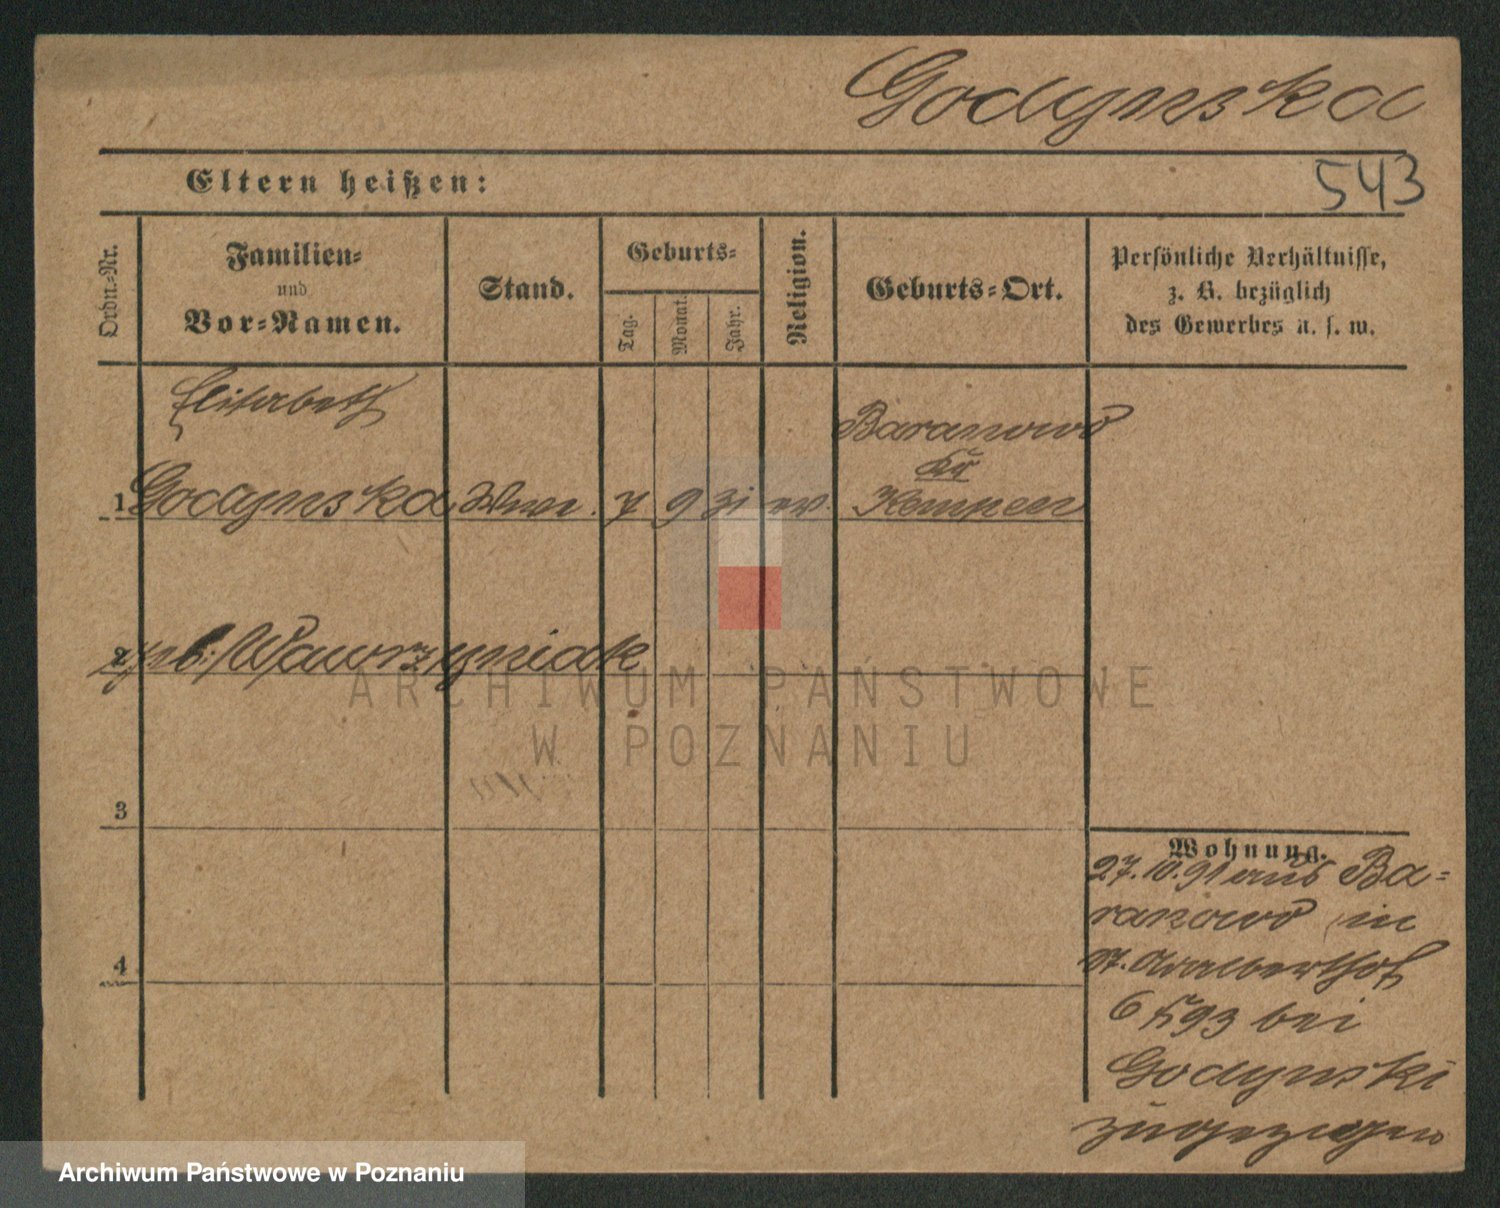 Godynska
Eltern heißen:
543
Ordn.-Nr.
Familien-
und
Vor-Namen.
Stand.
Geburts-
Tag.
Monat.
Jahr.
Religion.
Geburts-Ort.
Persönliche Verhältnisse,
z. B. bezüglich
des Gewerbes u. s. w.
Elisabeth
Baranowo
Kr
1 Godynska Wwe. 7 9 31 ev. Kempen
2 geb. Wawrzyniak
ARCHIWUM PAŃSTWOWE
W POZNANIU
3
Wohnung.
27.10.91 aus Ba-
ranowo in
St. Adalberthof
6 93 bei
4
Godynski
zugezogen
Archiwum Państwowe w Poznaniu